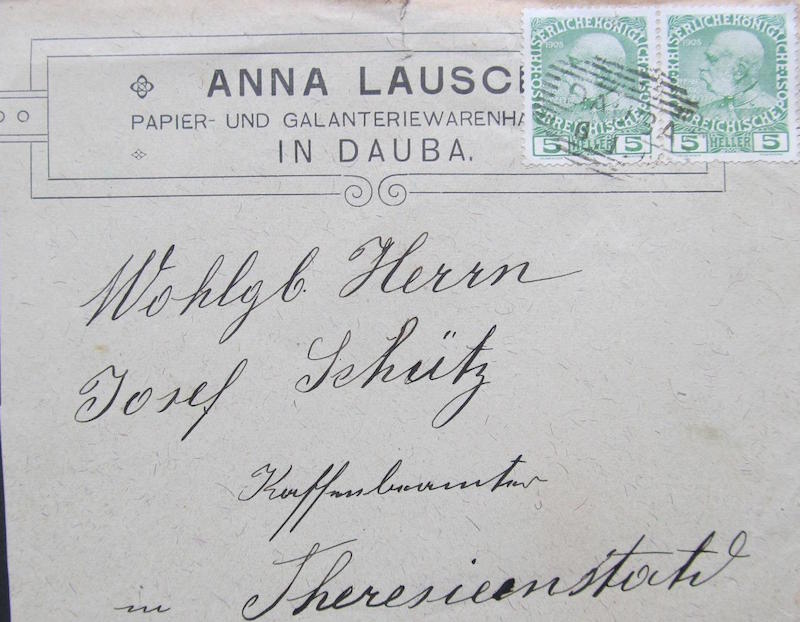 ANNA LAUSCH
PAPIER- UND GALANTERIEWARENHA
IN DAUBA.
KAISERLICHE KÖNIGLICHE
1908
REICHISCHE
5 HELLER 5
KAISERLICHE KÖNIGLICHE
1908
REICHISCHE
5 HELLER 5
Wohlgb. Herrn
Josef Schütz
Kassenbeamter
in Theresienstadt